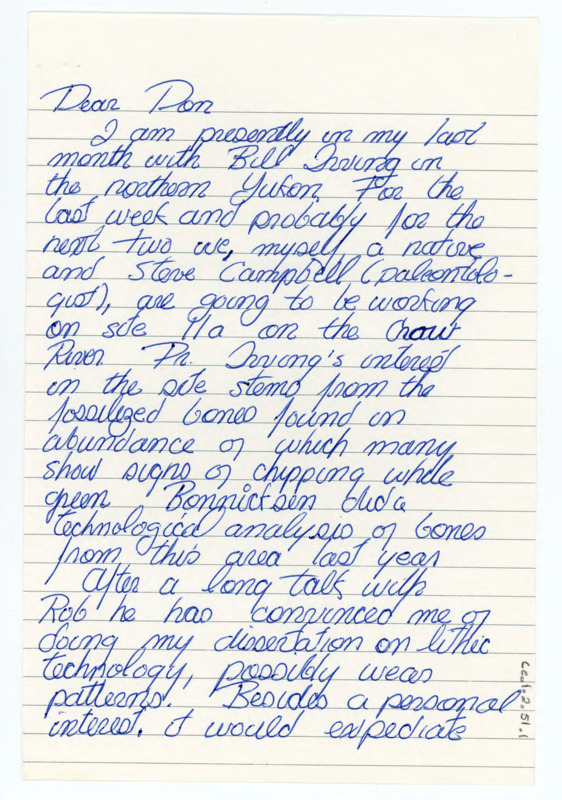 Dear Don
I am presently in my last
month with Bill Irving in
the northern Yukon. For the
last week and probably for the
next two we, myself a native
and Steve Campbell (paleontolo-
gist), are going to be working
on site 11a on the
River. Dr. Irving's interest
in the site stems from the
fossilized bones found in
abundance of which many
show signs of chipping while
green. Bonnichsen did a
technological analysis of bones
from this area last year
After a long talk with
Rob he has convinced me of
doing my dissertation on lithic
technology, possibly wear
patterns. Besides a personal
interest, it would expediate